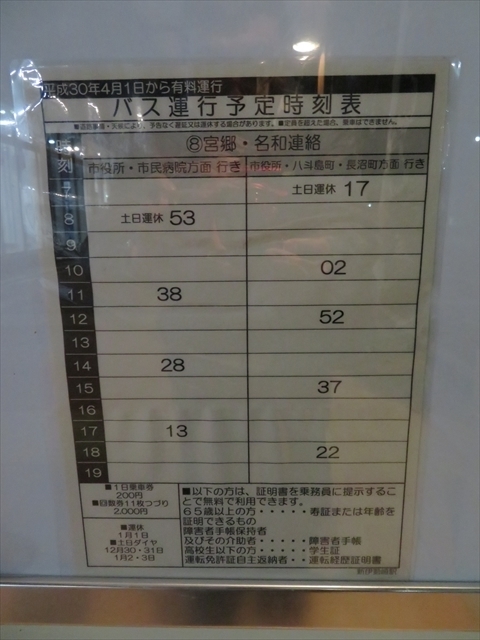 平成30年4月1日から有料運行
バス運行予定時刻表
■道路事情・天候により、予告なく遅延又は運休する場合があります。■定員を超えた場合、乗車はできません。
時刻
⑧宮郷・名和連絡
市役所・市民病院方面 行き 市役所・八斗島町・長沼町方面 行き
7 土日運休 17
8 土日運休 53
9
10 02
11 38
12 52
13
14 28
15 37
16
17 13
18 22
19
■1日乗車券
200円
■回数券11枚つづり
2,000円
■運休
1月1日
■土日ダイヤ
12月30・31日
1月2・3日
■以下の方は、証明書を乗務員に提示するこ
とで無料で利用できます。
65歳以上の方・・・・・寿証または年齢を
証明できるもの
障害者手帳保持者
及びその介助者・・・・・障害者手帳
高校生以下の方・・・・・学生証
運転免許証自主返納者・・運転経歴証明書
新伊勢崎駅